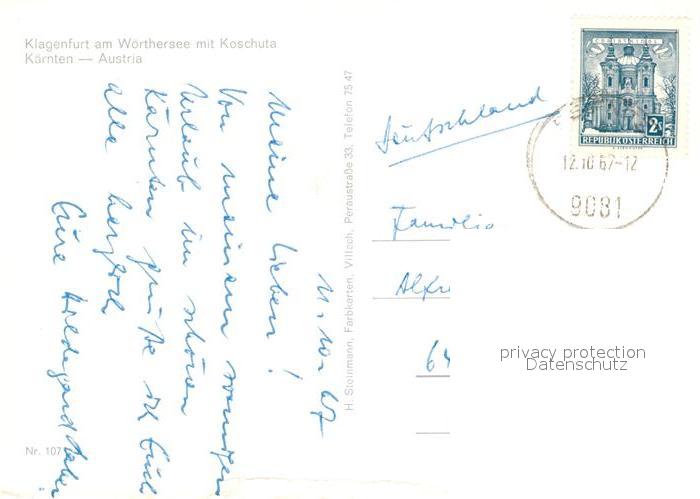 Klagenfurt am Wörthersee mit Koschuta
Kärnten — Austria
11. 10. 67
Meine Lieben!
Von meinem sonnigen
Urlaub im schönen
Kärnten grüße ich Euch
alle herzlich
Eure Hildegard
Nr. 107
H. Steinmann, Farbkarten, Villach, Peraustraße 33, Telefon 75 47
CHRISTKINDL
2S
REPUBLIK ÖSTERREICH
12.10.67-12
9081
Deutschland
Familie
Alfr
64
privacy protection
Datenschutz